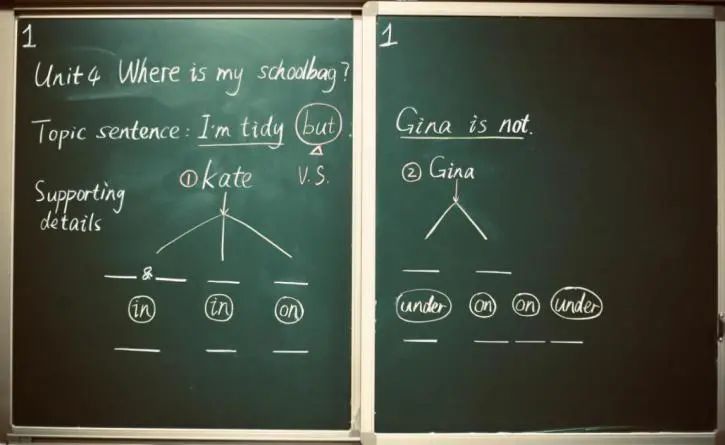 1
Unit 4 Where is my schoolbag?
Topic sentence: I'm tidy but :
V.S.
① kate
Supporting
details
&
in in on
1
Gina is not.
② Gina
under on on under